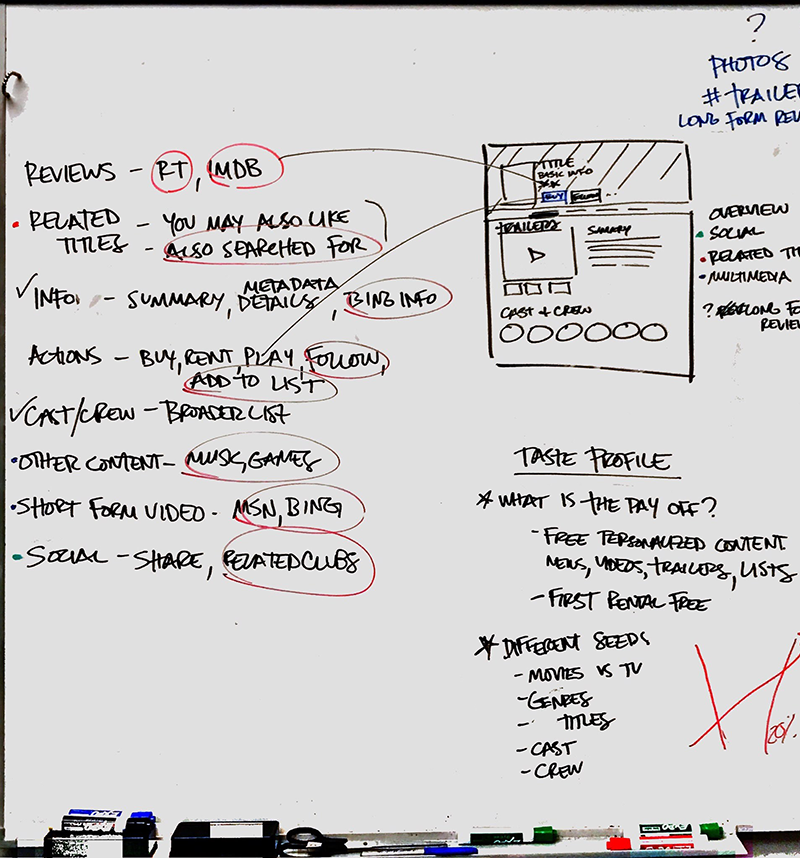 ?
PHOTOS
# TRAILER
LONG FORM REV
REVIEWS - RT, IMDB
• RELATED TITLES - YOU MAY ALSO LIKE
- ALSO SEARCHED FOR
✓ INFO - SUMMARY, METADATA DETAILS, BING INFO
ACTIONS - BUY, RENT, PLAY, FOLLOW,
ADD TO LIST
✓ CAST/CREW - BROADER LIST
• OTHER CONTENT - MUSIC, GAMES
• SHORT FORM VIDEO - MSN, BING
• SOCIAL - SHARE, RELATED CLUBS
TITLE
BASIC INFO
★★
BUY
...
TRAILERS
SUMMARY
CAST + CREW
OVERVIEW
• SOCIAL
• RELATED TI
• MULTIMEDIA
? LONG FO
REVIE
TASTE PROFILE
* WHAT IS THE PAY OFF?
- FREE PERSONALIZED CONTENT
NEWS, VIDEOS, TRAILERS, LISTS
- FIRST RENTAL FREE
* DIFFERENT SEEDS
- MOVIES VS TV
- GENRES
- TITLES
- CAST
- CREW
20%
EXPO